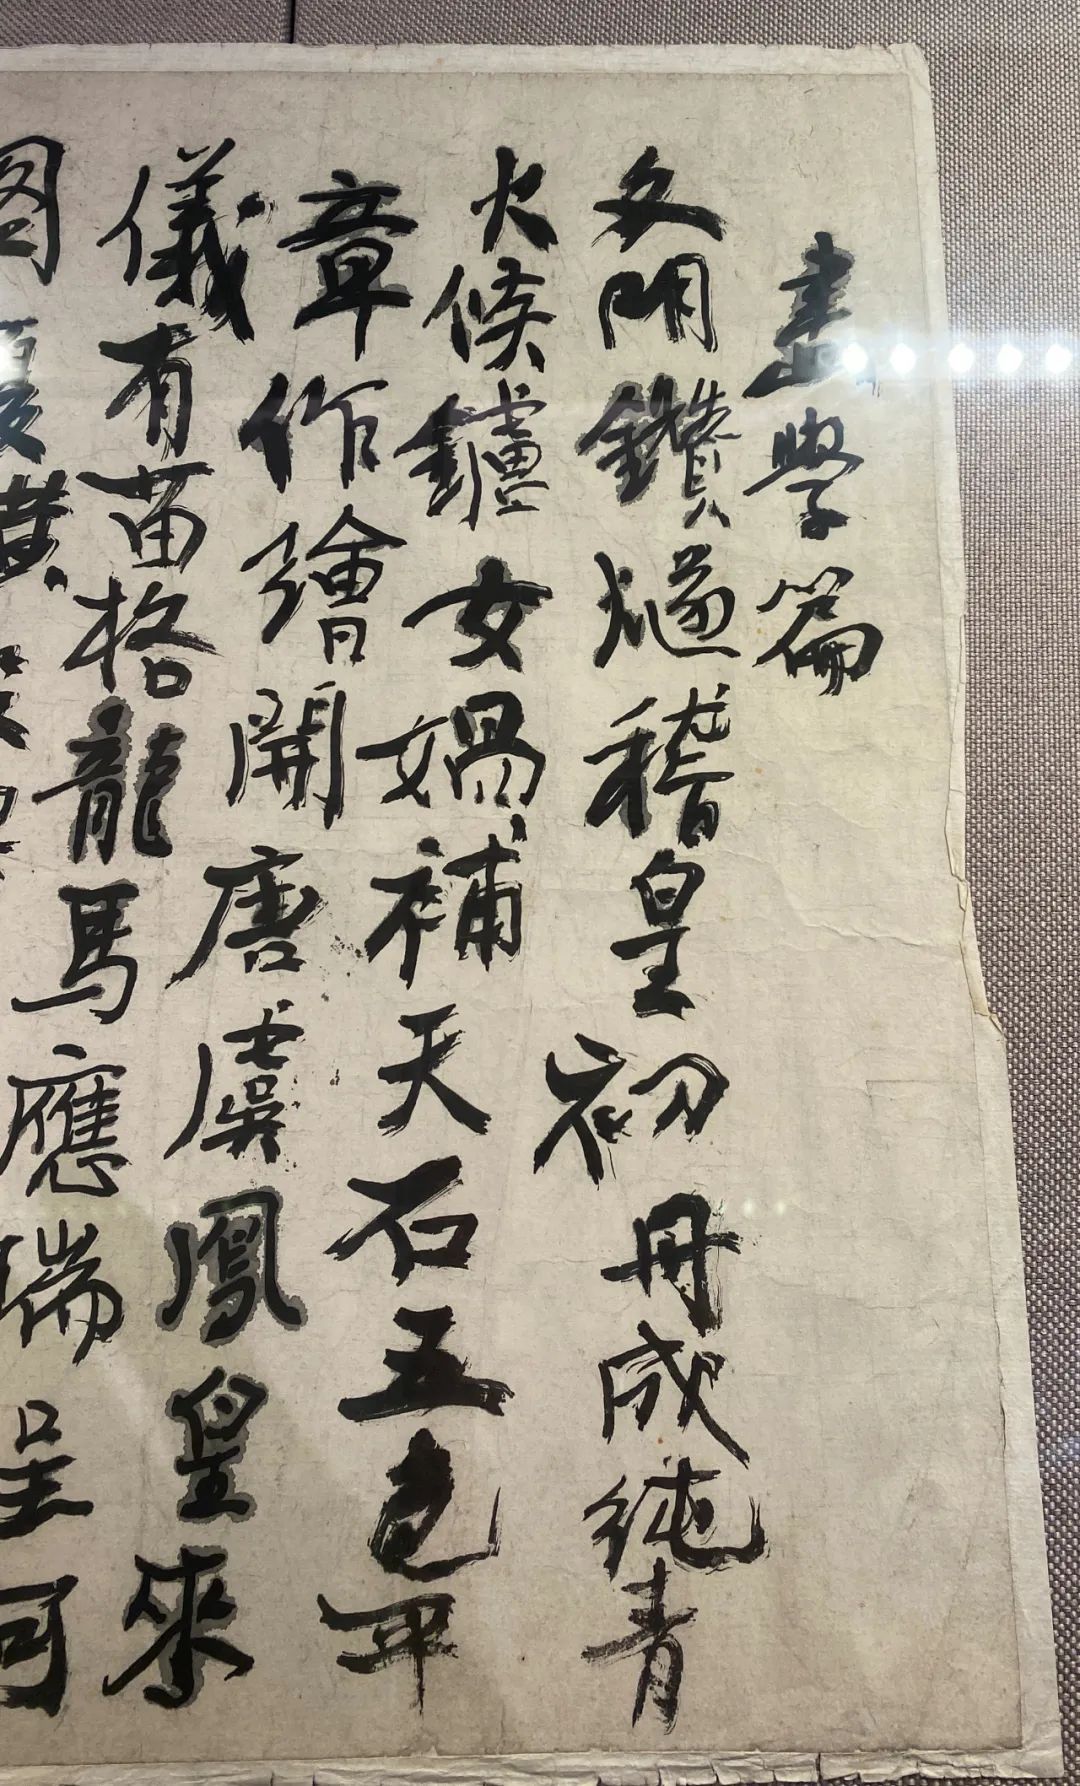 畫學篇
文明鑽燧稽皇初丹成純青
火候鑪女媧補天石五色平
章作繪開唐虞鳳皇來
儀有苗格龍馬應瑞呈河
圖夏璜